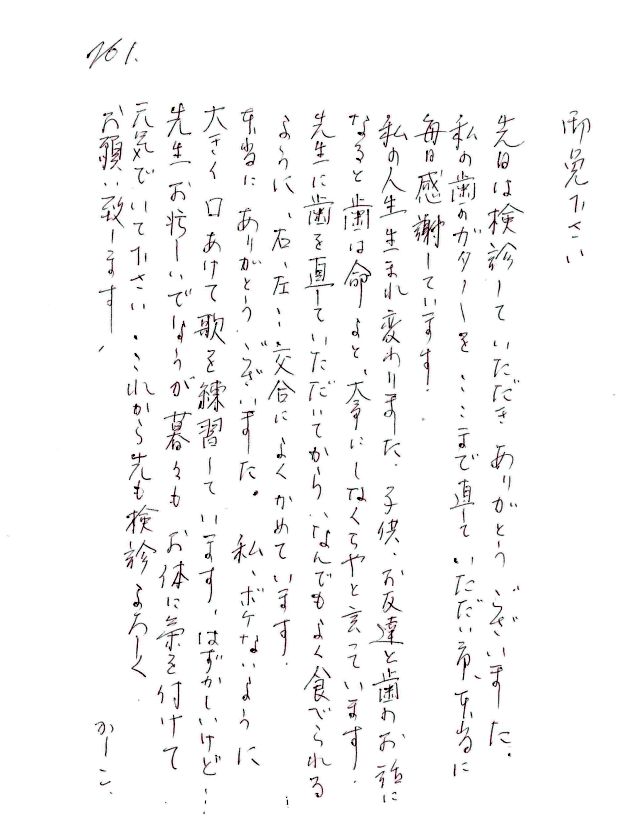 御免下さい
先日は検診していただき ありがとうございました。
私の歯のガターを、ここまで直していただい本当に
毎日感謝しています.
私の人生 生まれ変わりました. 子供、お友達と歯のお話に
なると歯は命よと、大事にしなくちやと言っています.
先生に歯を直していただいてから なんでもよく食べられる
ように、右、左…交合によくかめています.
本当に ありがとうございました。 私、ボケないように
大きく口あけて歌を練習しています、はずかしいけど…
先生 お忙しいでしょうが 暮々も お体に気を付けて
元気でいて下さい. これから先も検診 よろしく
お願い致します、
かーこ.
261.